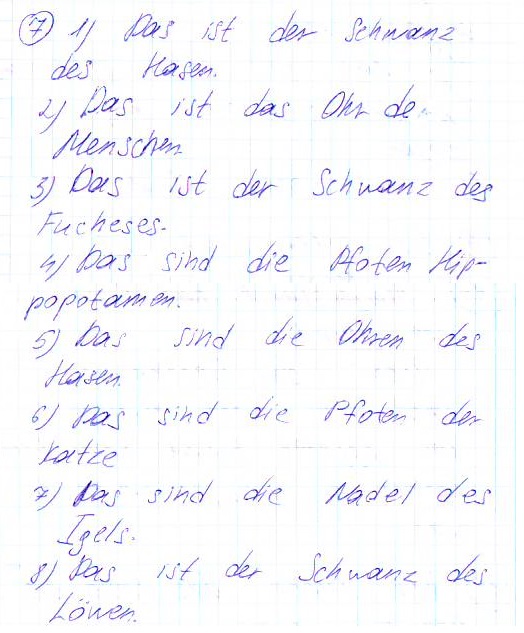 7 1) Das ist der Schwanz
des Hasen.
2) Das ist das Ohr de
Menschen
3) Das ist der Schwanz des
Fucheses.
4) Das sind die Pfoten Hip-
popotamen.
5) Das sind die Ohren des
Hasen.
6) Das sind die Pfoten der
Katze
7) Das sind die Nadel des
Igels.
8) Das ist der Schwanz des
Löwen.